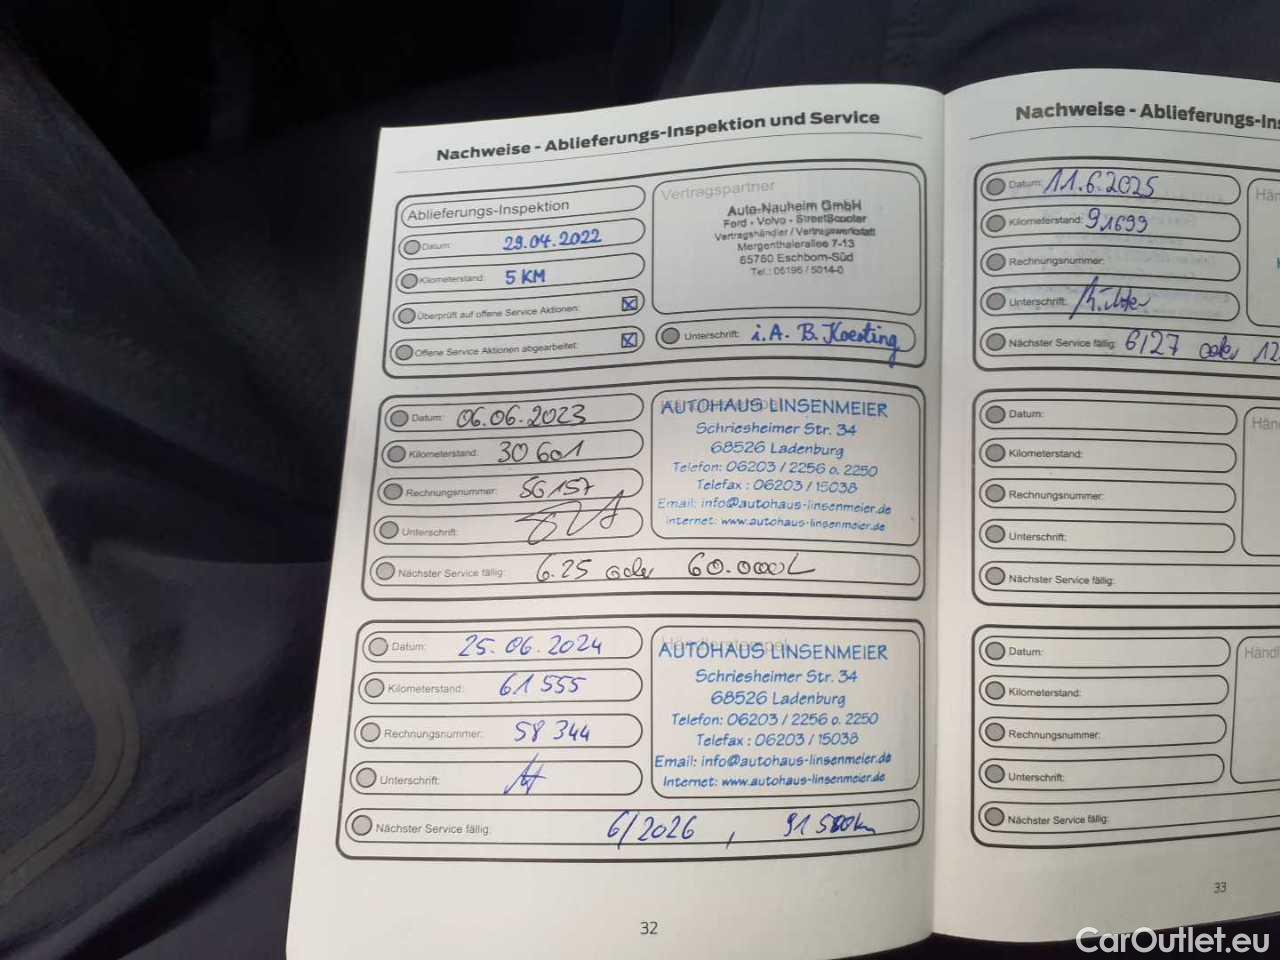 Nachweise - Ablieferungs-Inspektion und Service
Ablieferungs-Inspektion
Datum: 29.04.2022
Kilometerstand: 5 KM
Überprüft auf offene Service Aktionen:
Offene Service Aktionen abgearbeitet:
Vertragspartner
Auto-Nauheim GmbH
Ford - Volvo - StreetScooter
Vertragshändler / Vertragswerkstatt
Mergenthalerallee 7-13
65760 Eschborn-Süd
Tel.: 06196 / 5014-0
Unterschrift: i.A. B. Koesting
Datum: 06.06.2023
Kilometerstand: 30 601
Rechnungsnummer: 56157
Unterschrift:
Nächster Service fällig: 6.25 oder 60.000
AUTOHAUS LINSENMEIER
Schriesheimer Str. 34
68526 Ladenburg
Telefon: 06203 / 2256 o. 2250
Telefax : 06203 / 15038
Email: info@autohaus-linsenmeier.de
Internet: www.autohaus-linsenmeier.de
Datum: 25.06.2024
Kilometerstand: 61 555
Rechnungsnummer: 58 344
Unterschrift:
Nächster Service fällig: 6/2026, 91 500km
Händlerstempel
AUTOHAUS LINSENMEIER
Schriesheimer Str. 34
68526 Ladenburg
Telefon: 06203 / 2256 o. 2250
Telefax : 06203 / 15038
Email: info@autohaus-linsenmeier.de
Internet: www.autohaus-linsenmeier.de
32
Nachweise - Ablieferungs-Ins
Datum: 11.6.2025
Kilometerstand: 91699
Rechnungsnummer:
Unterschrift:
Nächster Service fällig: 6/27 oder 12
Hän
Datum:
Kilometerstand:
Rechnungsnummer:
Unterschrift:
Nächster Service fällig:
Hän
Datum:
Kilometerstand:
Rechnungsnummer:
Unterschrift:
Nächster Service fällig:
Händl
33
CarOutlet.eu